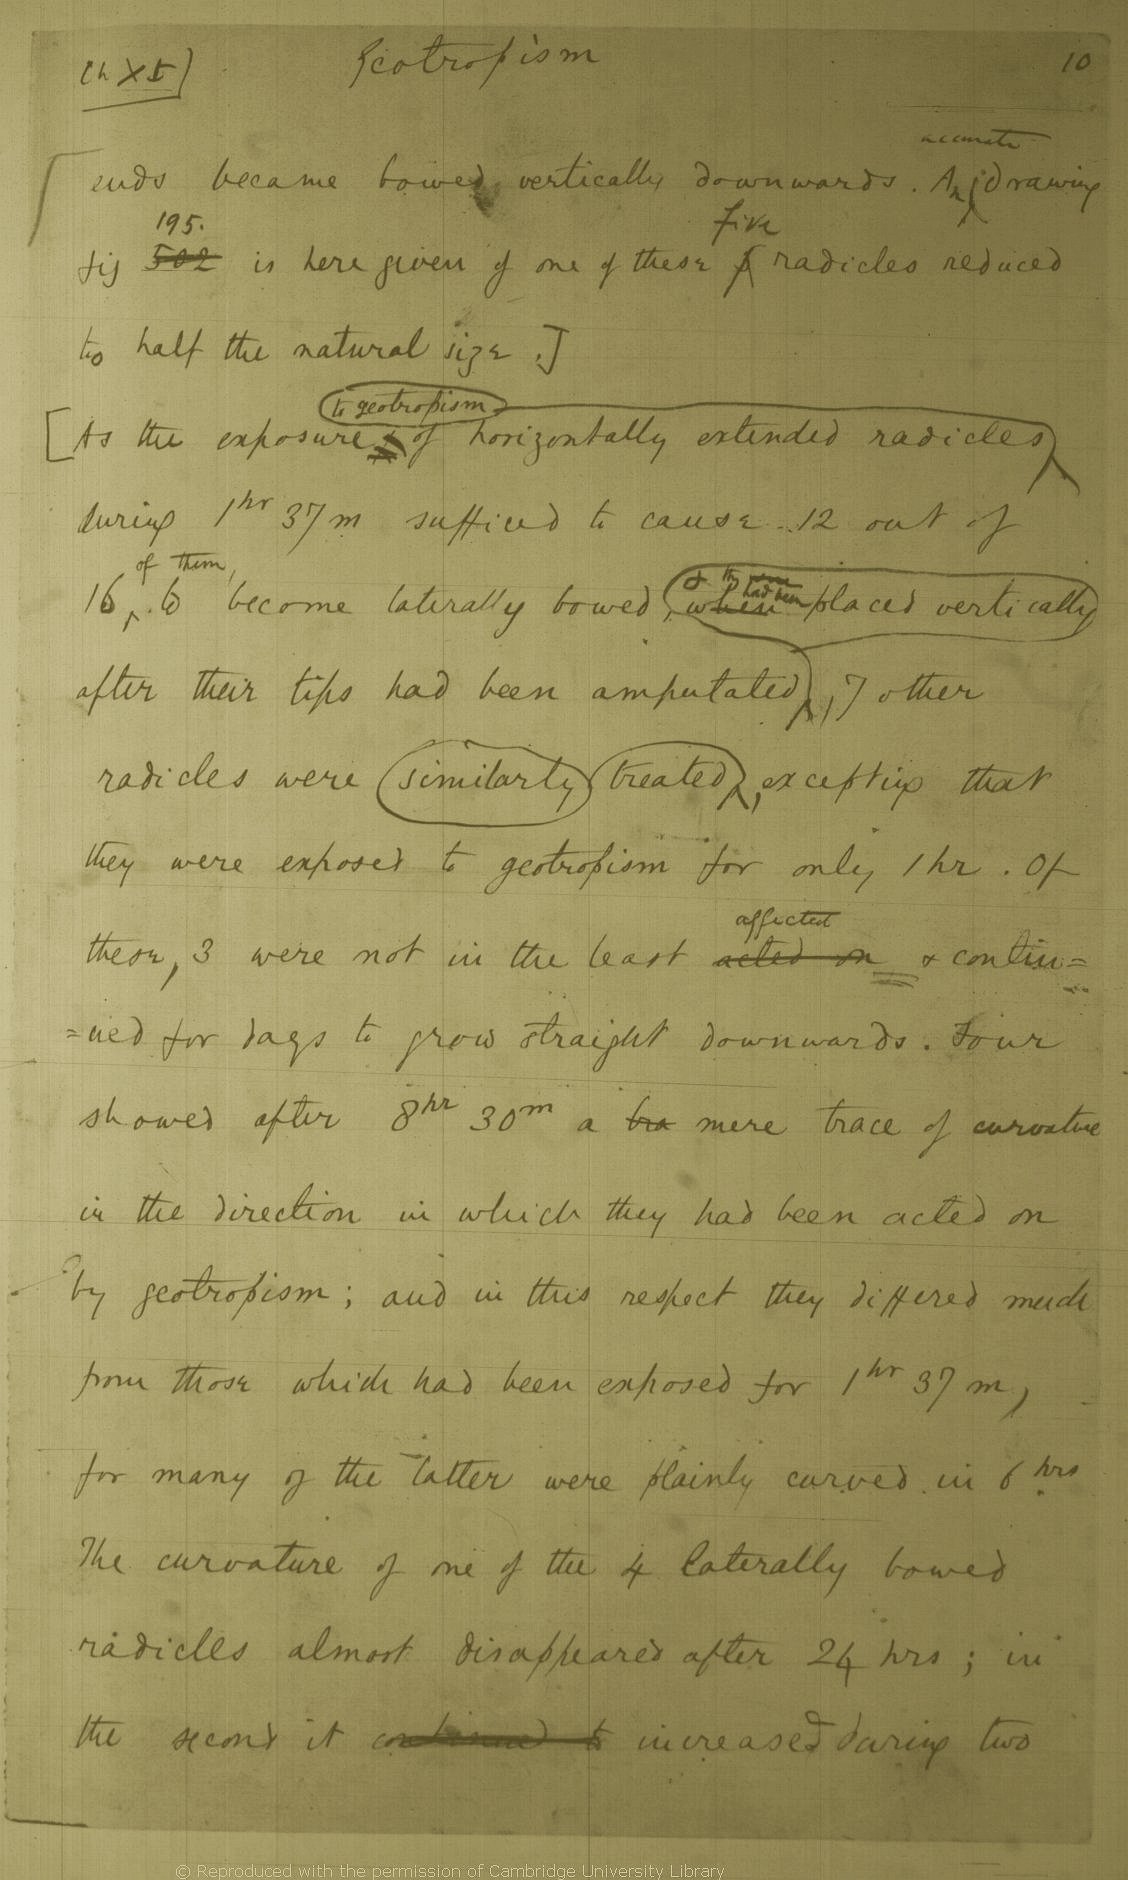 Ch XI] Geotropism 10
accurate
ends became bowed vertically downwards. An drawing
195. five
fig 502 is here given of one of these 5 radicles reduced
to half the natural size.]
to geotropism
[As the exposure of horizontally extended radicles
during 1hr 37m sufficed to cause 12 out of
of them, & the had been
16, to become laterally bowed, when placed vertically
after their tips had been amputated, 7 other
radicles were similarly treated, excepting that
they were exposed to geotropism for only 1 hr. Of
affected
these, 3 were not in the least acted on & contin=
=ued for days to grow straight downwards. Four
showed after 8hr 30m a tra mere trace of curvature
in the direction in which they had been acted on
by geotropism; and in this respect they differed much
from those which had been exposed for 1hr 37m,
for many of the latter were plainly curved in 6 hrs
The curvature of one of the 4 laterally bowed
radicles almost disappeared after 24 hrs; in
the second it continued to increased during two
© Reproduced with the permission of Cambridge University Library